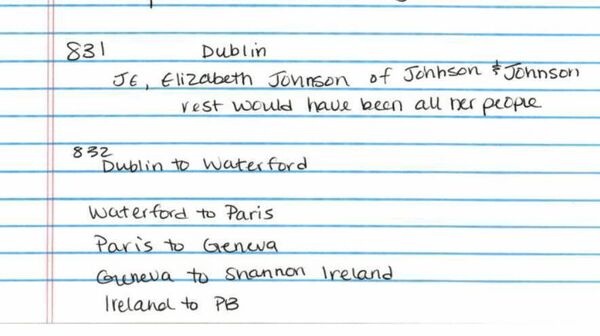 831 Dublin
JE, Elizabeth Johnson of Johnson & Johnson
rest would have been all her people
832
Dublin to Waterford
Waterford to Paris
Paris to Geneva
Geneva to Shannon Ireland
Ireland to PB